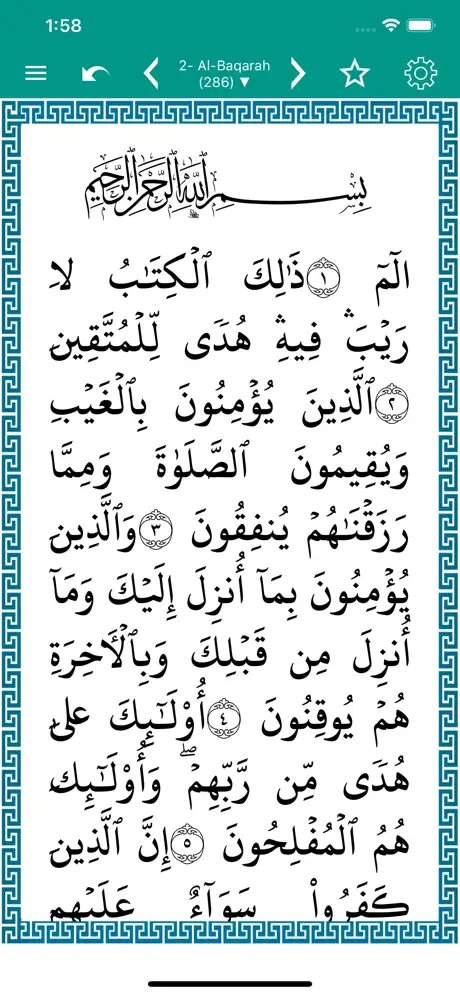 1:58
2- Al-Baqarah
(286) ▼
بِسْمِ ٱللَّهِ ٱلرَّحْمَٰنِ ٱلرَّحِيمِ
الٓمٓ ١ ذَٰلِكَ ٱلْكِتَٰبُ لَا
رَيْبَ ۛ فِيهِ ۛ هُدًى لِّلْمُتَّقِينَ
٢ ٱلَّذِينَ يُؤْمِنُونَ بِٱلْغَيْبِ
وَيُقِيمُونَ ٱلصَّلَوٰةَ وَمِمَّا
رَزَقْنَٰهُمْ يُنفِقُونَ ٣ وَٱلَّذِينَ
يُؤْمِنُونَ بِمَآ أُنزِلَ إِلَيْكَ وَمَآ
أُنزِلَ مِن قَبْلِكَ وَبِٱلْأَخِرَةِ
هُمْ يُوقِنُونَ ٤ أُو۟لَٰٓئِكَ عَلَىٰ
هُدًى مِّن رَّبِّهِمْ ۖ وَأُو۟لَٰٓئِكَ
هُمُ ٱلْمُفْلِحُونَ ٥ إِنَّ ٱلَّذِينَ
كَفَرُوا۟ سَوَآءٌ عَلَيْهِمْ